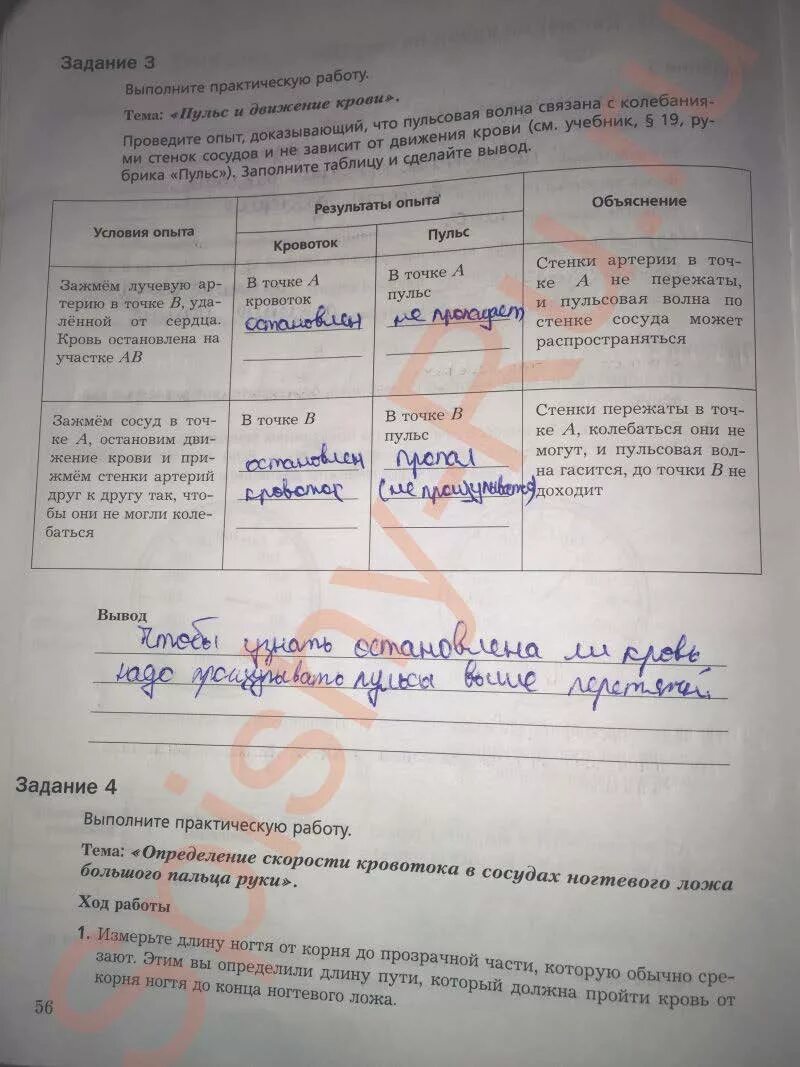 Задание 3
Выполните практическую работу.
Тема: «Пульс и движение крови».
Проведите опыт, доказывающий, что пульсовая волна связана с колебания-
ми стенок сосудов и не зависит от движения крови (см. учебник, § 19, ру-
брика «Пульс»). Заполните таблицу и сделайте вывод.
Условия опыта
Результаты опыта
Объяснение
Кровоток
Пульс
Зажмём лучевую ар-
терию в точке B, уда-
лённой от сердца.
Кровь остановлена на
участке AB
В точке A
кровоток
остановлен
В точке A
пульс
не пропадает
Стенки артерии в точ-
ке A не пережаты,
и пульсовая волна по
стенке сосуда может
распространяться
Зажмём сосуд в точ-
ке A, остановим дви-
жение крови и при-
жмём стенки артерий
друг к другу так, что-
бы они не могли коле-
баться
В точке B
остановлен
кровоток
В точке B
пульс
пропал
(не прощупывается)
Стенки пережаты в точ-
ке A, колебаться они не
могут, и пульсовая вол-
на гасится, до точки B не
доходит
Вывод
Чтобы узнать остановлена ли кровь
надо прощупывать пульсы выше
Задание 4
Выполните практическую работу.
Тема: «Определение скорости кровотока в сосудах ногтевого ложа
большого пальца руки».
Ход работы
1. Измерьте длину ногтя от корня до прозрачной части, которую обычно сре-
зают. Этим вы определили длину пути, который должна пройти кровь от
корня ногтя до конца ногтевого ложа.
56